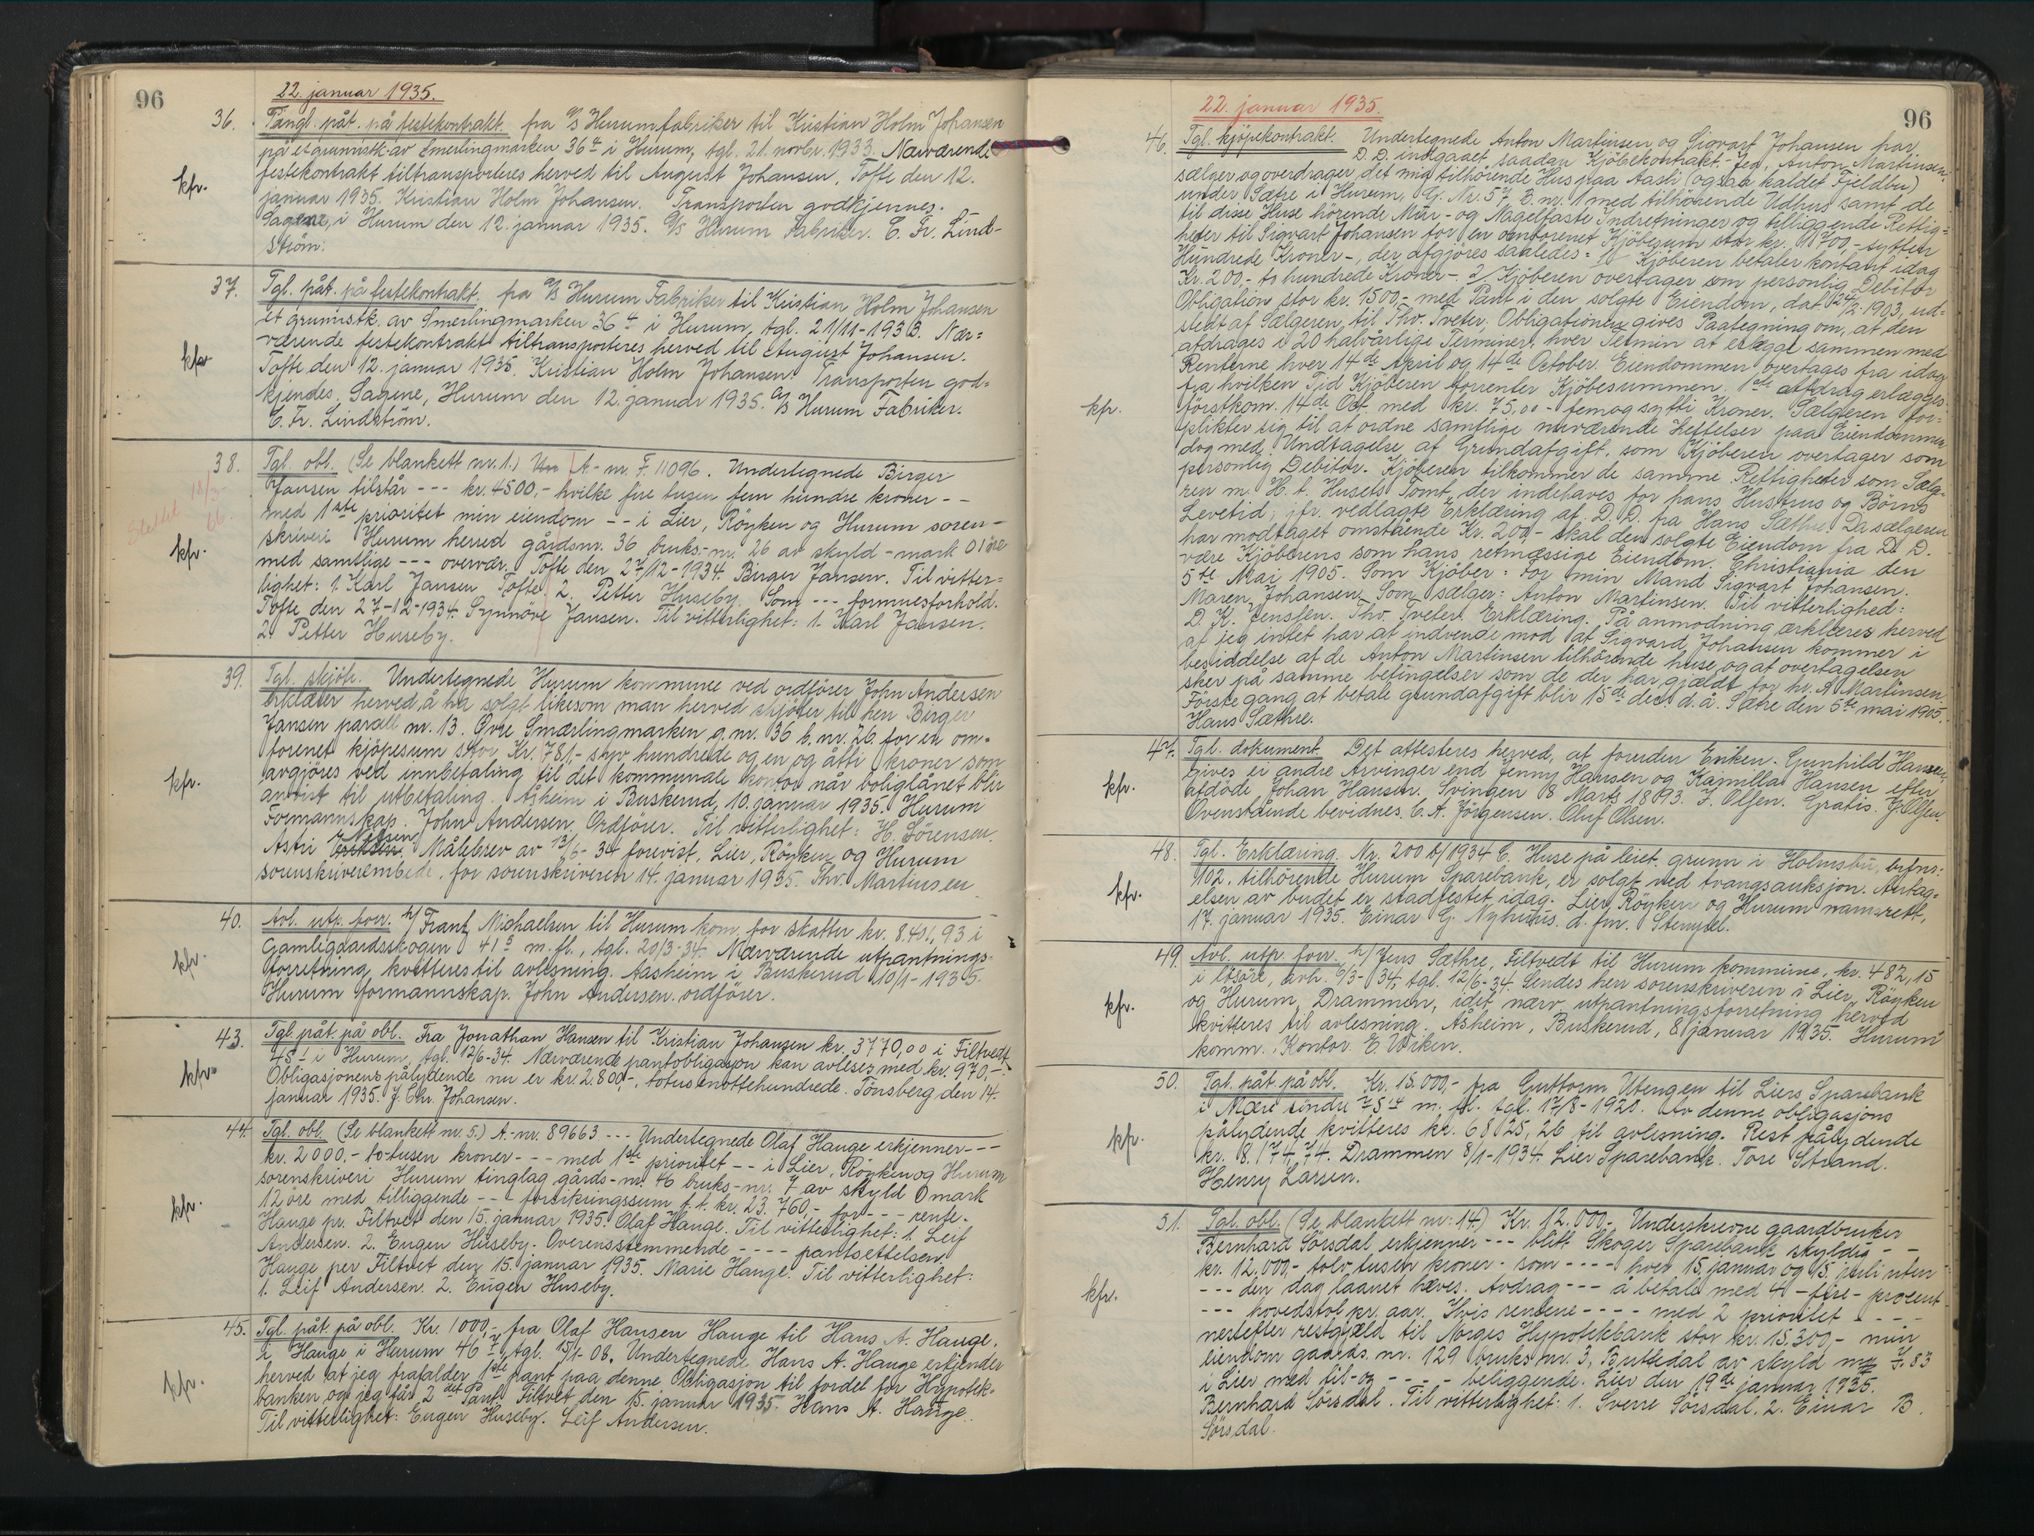 96
22. januar 1935.
36. Tingl. påt. på festekontrakt. fra A/S Hurumfabriker til Kristian Holm Johansen
på et grunnstk. av Smerlingmarken 36⁴ i Hurum, tgl. 21. novbr. 1933. Nærværende
kfr. festekontrakt tiltransporteres herved til August Johansen. Tofte den 12.
januar 1935. Kristian Holm Johansen. Transporten godkjennes.
Sagene, i Hurum den 12. januar 1935. A/S Hurum Fabriker. C. Fr. Lind-
strøm.
37. Tgl. påt. på festekontrakt. fra A/S Hurum Fabriker til Kristian Holm Johansen
et grunnstk. av Smerlingmarken 36⁴ i Hurum, tgl. 21/11-1933. Nær=
kfr værende festekontrakt tiltransporteres herved til August Johansen.
Tofte den 12. januar 1935. Kristian Holm Johansen. Transporten god-
kjendes. Sagene, Hurum den 12. januar 1935. A/S Hurum Fabriker.
C. Fr. Lindstrøm.
38. Tgl. obl. (Se blankett nr. 1.) A-nr. F. 11096. Undertegnede Birger
Jansen tilstår --- kr. 4500,- hvilke fire tusen fem hundre kroner --
Slettet 18/3-66. med 1ste prioritet min eiendom -- i Lier, Röyken og Hurum soren-
kfr. skriveri Hurum herred gårdsnr. 36 bruks-nr. 26 av skyld - mark 01 öre
med samtlige --- overvær. Tofte den 27/12-1934. Birger Jansen. Til vitter-
lighet: 1. Karl Jansen Tofte 2. Petter Huseby. Som --- formuesforhold.
Tofte den 27-12-1934. Synnöve Jansen. Til vitterlighet: 1. Karl Jansen.
2. Petter Huseby.
39. Tgl. skjöte. Undertegnede Hurum kommune ved ordförer John Andersen
erklærer herved å ha solgt likesom man herved skjöter til herr Birger
Jansen parsell nr. 13. Övre Smærlingmarken g.nr. 36 b.nr. 26 for en om-
forenet kjöpesum stor Kr. 781,- syv hundrede og en og åtti kroner som
kfr. avgjöres ved innbetaling til det kommunale kontor når boliglånet blir
anvist til utbetaling. Åsheim i Buskerud, 10. januar 1935. Hurum
Formannskap. John Andersen. Ordförer. Til vitterlighet: H. Sörensen.
Astri Nilsen. Målebrev av 13/6-34 forevist. Lier, Röyken og Hurum
sorenskriverembede. for sorenskriveren 14. januar 1935. Thv. Martinsen
40. Avl. utp. forr. h/ Frantz Michaelsen til Hurum kom. for skatter kr. 8.401,93 i
Gamlegaardsskogen 41⁵ m. fl., tgl. 20/3-34. Nærværende utpantnings-
kfr. forretning kvitteres til avlesning. Aasheim i Buskerud 10/1-1935.
Hurum formannskap. John Andersen. ordförer.
43. Tgl. påt. på obl. Fra Jonathan Hansen til Kristian Johansen kr. 3770,00 i Filtvedt
45¹ i Hurum, tgl. 12/6-34. Nærværende pantobligasjon kan avleses med kr. 970,-.
kfr. Obligasjonens pålydende nu er kr. 2.800,-, totusenottehundrede. Tönsberg den 14.
januar 1935. J. Chr. Johansen.
44. Tgl. obl. (Se blankett nr. 5.) A.-nr. 89663 --- Undertegnede Olaf Hauge erkjenner ---
kr. 2000.- to tusen kroner --- med 1ste prioritet -- i Lier, Röyken og Hurum
sorenskriveri Hurum tinglag gårds-nr. 46 bruks-nr. 7 av skyld 0 mark
kfr. 12 öre med tilliggende -- forsikringssum f. t. kr. 23.760,- for --- rente.
Hauge pr. Filtvet den 15. januar 1935. Olaf Hauge. Til vitterlighet: 1. Leif
Andersen. 2. Eugen Huseby. Overensstemmende ---- pantsettelsen.
Hauge per Filtvet den 15. januar 1935. Marie Hauge. Til vitterlighet:
1. Leif Andersen. 2. Eugen Huseby.
45. Tgl. påt. på obl. Kr. 1000,- fra Olaf Hansen Hauge til Hans A. Hauge.
i Hauge i Hurum 46⁷, tgl. 15/1-08. Undertegnede Hans A. Hauge erkjender
kfr. herved at jeg frafalder 1ste pant paa denne Obligasjon til fordel for Hypotek-
banken og jeg får 2det Pant. Filtvet den 15. januar 1935. Hans A. Hauge.
Til vitterlighet: Eugen Huseby. Leif Andersen.
96
22. januar 1935
46. Tgl. kjöpekontrakt. Undertegnede Anton Martinsen og Sigvart Johansen har
D. D. indgaaet saadan Kjöbekontrakt:- Jeg, Anton Martinsen,
sælger og overdrager det mig tilhörende Hus paa Aasti (ogsaa kaldet Fjeldbu)
under Sætre i Hurum, G. Nr. 57 B. nr. 1 med tilhörende Udhus samt de
til disse Huse hörende Mur- og Nagelfaste Indretninger og tilliggende Rettig=
heder til Sigvart Johansen for en omforenet Kjöbesum stor kr. 1700,- sytten
Hundrede Kroner-, der afgjöres saaledes:- 1/ Kjöberen betaler kontant idag
Kr. 200,- to hundrede Kroner-, 2/ Kjöberen overtager som personlig Debitor
Obligation stor kr. 1500,- med Pant i den solgte Eiendom, dat. 24/2 1903, ud-
stedt af Sælgeren til Thv. Tveter. Obligationen gives Paategning om, at den
afdrages i 20 halvårlige Terminer, hver Termin at erlægge sammen med
Renterne hver 14de April og 14de October. Eiendommen overtages fra idag
fra hvilken Tid Kjöberen forrenter Kjöbesummen. 1ste afdrag erlægges
kfr. förstkom. 14de Oct. med kr. 75,00 - femogsytti Kroner. Sælgeren for-
plikter sig til at ordne samtlige nuværende Heftelser paa Eiendommen
dog med Undtagelse af Grundafgift, som Kjöberen overtager som
personlig Debitor. Kjöberen tilkommer de samme Rettigheder som Sælg-
ren m. H. t. Husets Tomt, der indehaves for hans Hustrus og Börns
Levetid, jfr. vedlagte Erklæring af D. D. fra Hans Sæthre. Da sælgeren
har modtaget omstående Kr. 200,- skal den solgte Eiendom fra D. D.
være Kjöberens som hans retmæssige Eiendom. Christiania den
5te Mai 1905. Som Kjöber: For min Mand Sigvart Johansen.
Maren Johansen. Som sælger: Anton Martinsen. Til vitterlighed:
D. K. Jenssen. Thv. Tveter. Erklæring. På anmodning erklæres herved
at jeg intet har at indvende mod at Sigvard Johansen kommer i
besiddelse af de Anton Martinsen tilhörende huse og at overtagelsen
sker på samme betingelser som de der har gjældt for hr. A. Martinsen.
Förste gang at betale grundafgift blir 15de dec. d. å. Sætre den 5te mai 1905.
Hans Sæthre.
47. Tgl. dokument. Det attesteres herved, at foruden Enken Gunhild Hansen,
gives ei andre Arvinger end Jenny Hansen og Kamilla Hansen efter
kfr. afdöde Johan Hansen. Svingen 8 Marts 1893. J. Olsen. Gratis. J. Olsen.
Ovenstående bevidnes. C. A. Jörgensen. Oluf Olsen.
48. Tgl. Erklæring. Nr. 200 b/1934 C. Huse på leiet grunn i Holmsbu, brfnr.
102. tilhörende Hurum Sparebank, er solgt ved tvangsauksjon. Antag-
kfr. elsen av budet er stadfestet idag. Lier, Röyken og Hurum namsrett,
17. januar 1935. Einar G. Nyhuus. d. fm. Stempel.
49. Avl. utp. forr. h/ Jens Sæthre, Filtvedt til Hurum kommune, kr. 482,15
i lösöre, avh. 6/3-34, tgl. 12/6-34. Sendes herr sorenskriveren i Lier, Röyken
kfr. og Hurum, Drammen, idet nærv. utpantningsforretning herved
kvitteres til avlesning. Åsheim, Buskerud, 8 januar 1935. Hurum
komm. Kontor. E. Wiken.
50. Tgl. påt. på obl. Kr. 15.000,- fra Guttorm Utengen til Liers Sparebank
i Mære söndre 75¹⁴ m. fl. tgl. 17/8-1928. Av denne obligasjons
kfr. pålydende kvitteres kr. 6825,26 til avlesning. Rest pålydende
kr. 8.174,74. Drammen 8/1-1934. Lier Sparebank. Tore Strand.
Henry Larsen.
51. Tgl. obl. (Se blankett nr. 14.) Kr. 12.000,- Underskrevne gaardbruker
Bernhard Sörsdal erkjenner --- blitt Skoger Sparebank skyldig --
kr. 12.000,- tolv tusen kroner - som ---- hver 15. januar og 15. juli uten
--- den dag laanet hæves. Avdrag --- å betale med 4 -fire- procent
kfr. --- hovedstol pr. aar. Hvis rentene ---- med 2 prioritet ----
nestefter restgjæld til Norges Hypotekbank stor kr. 15.300,- min
eiendom gaards. nr. 129 bruks nr. 3, Buttedal av skyld mk 7.83
i Lier med til- og ---- beliggende. Lier den 19de januar 1935.
Bernhard Sörsdal. Til vitterlighet: 1. Sverre Sörsdal. 2. Einar B.
Sörsdal.